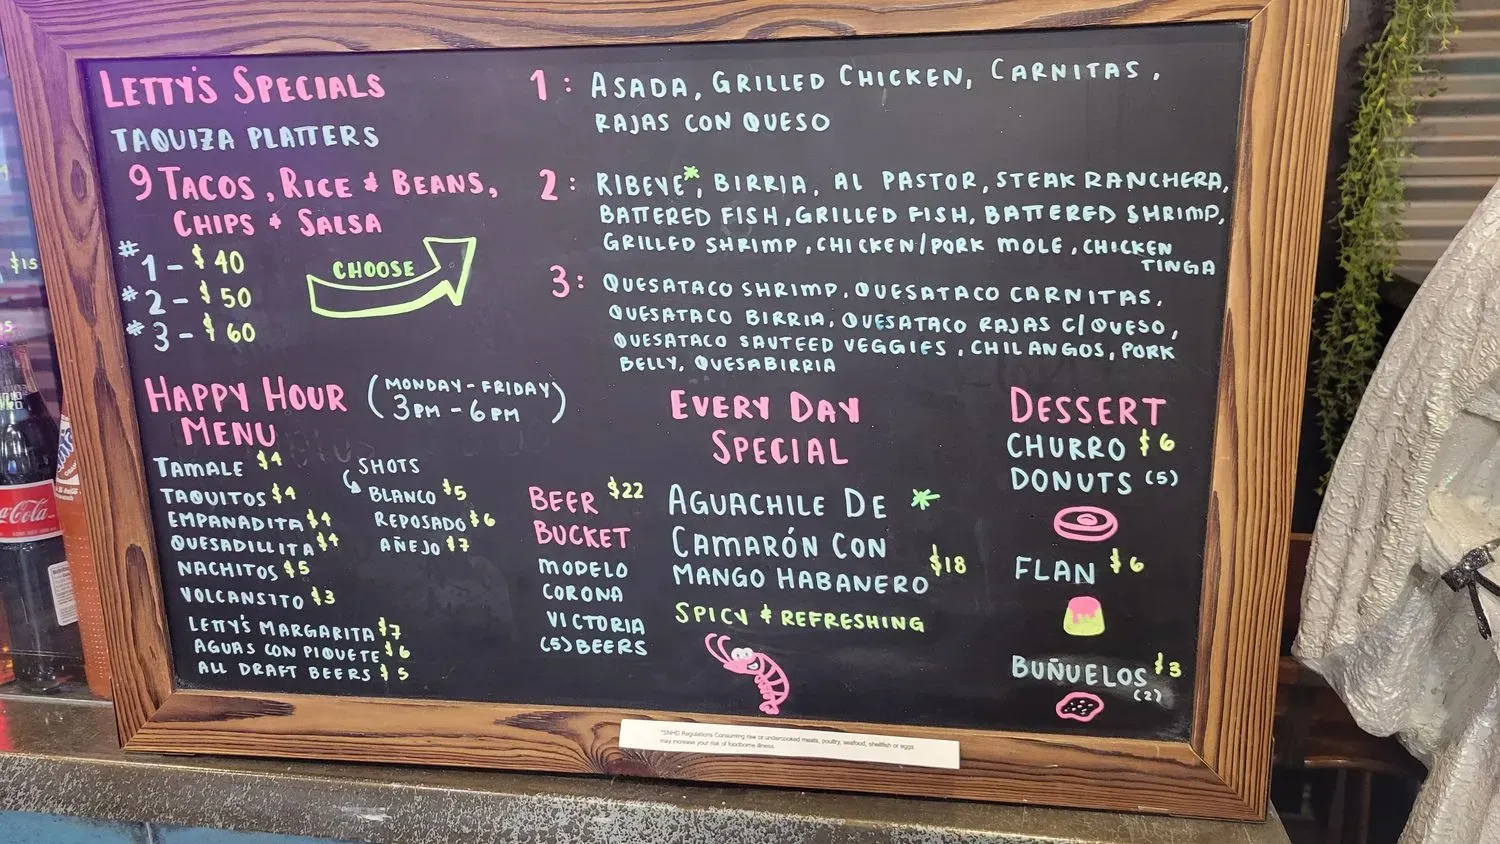 LETTY'S SPECIALS
TAQUIZA PLATTERS
9 TACOS, RICE & BEANS,
CHIPS & SALSA
#1 - $40
#2 - $50
#3 - $60
CHOOSE
1: ASADA, GRILLED CHICKEN, CARNITAS,
RAJAS CON QUESO
2: RIBEYE*, BIRRIA, AL PASTOR, STEAK RANCHERA,
BATTERED FISH, GRILLED FISH, BATTERED SHRIMP,
GRILLED SHRIMP, CHICKEN/PORK MOLE, CHICKEN
TINGA
3: QUESATACO SHRIMP, QUESATACO CARNITAS,
QUESATACO BIRRIA, QUESATACO RAJAS C/QUESO,
QUESATACO SAUTEED VEGGIES, CHILANGOS, PORK
BELLY, QUESABIRRIA
HAPPY HOUR
MENU
(MONDAY-FRIDAY)
3PM - 6PM
TAMALE $4
TAQUITOS $4
EMPANADITA $4
QUESADILLITA $4
NACHITOS $5
VOLCANSITO $3
LETTY'S MARGARITA $7
AGUAS CON PIQUETE $6
ALL DRAFT BEERS $5
SHOTS
BLANCO $5
REPOSADO $6
AÑEJO $7
BEER $22
BUCKET
MODELO
CORONA
VICTORIA
(5) BEERS
EVERY DAY
SPECIAL
AGUACHILE DE *
CAMARÓN CON
MANGO HABANERO $18
SPICY & REFRESHING
DESSERT
CHURRO $6
DONUTS (5)
FLAN $6
BUÑUELOS $3
(2)
*SNHD Regulations Consuming raw or undercooked meats, poultry, seafood, shellfish or eggs
may increase your risk of foodborne illness
$15
Coca-Cola